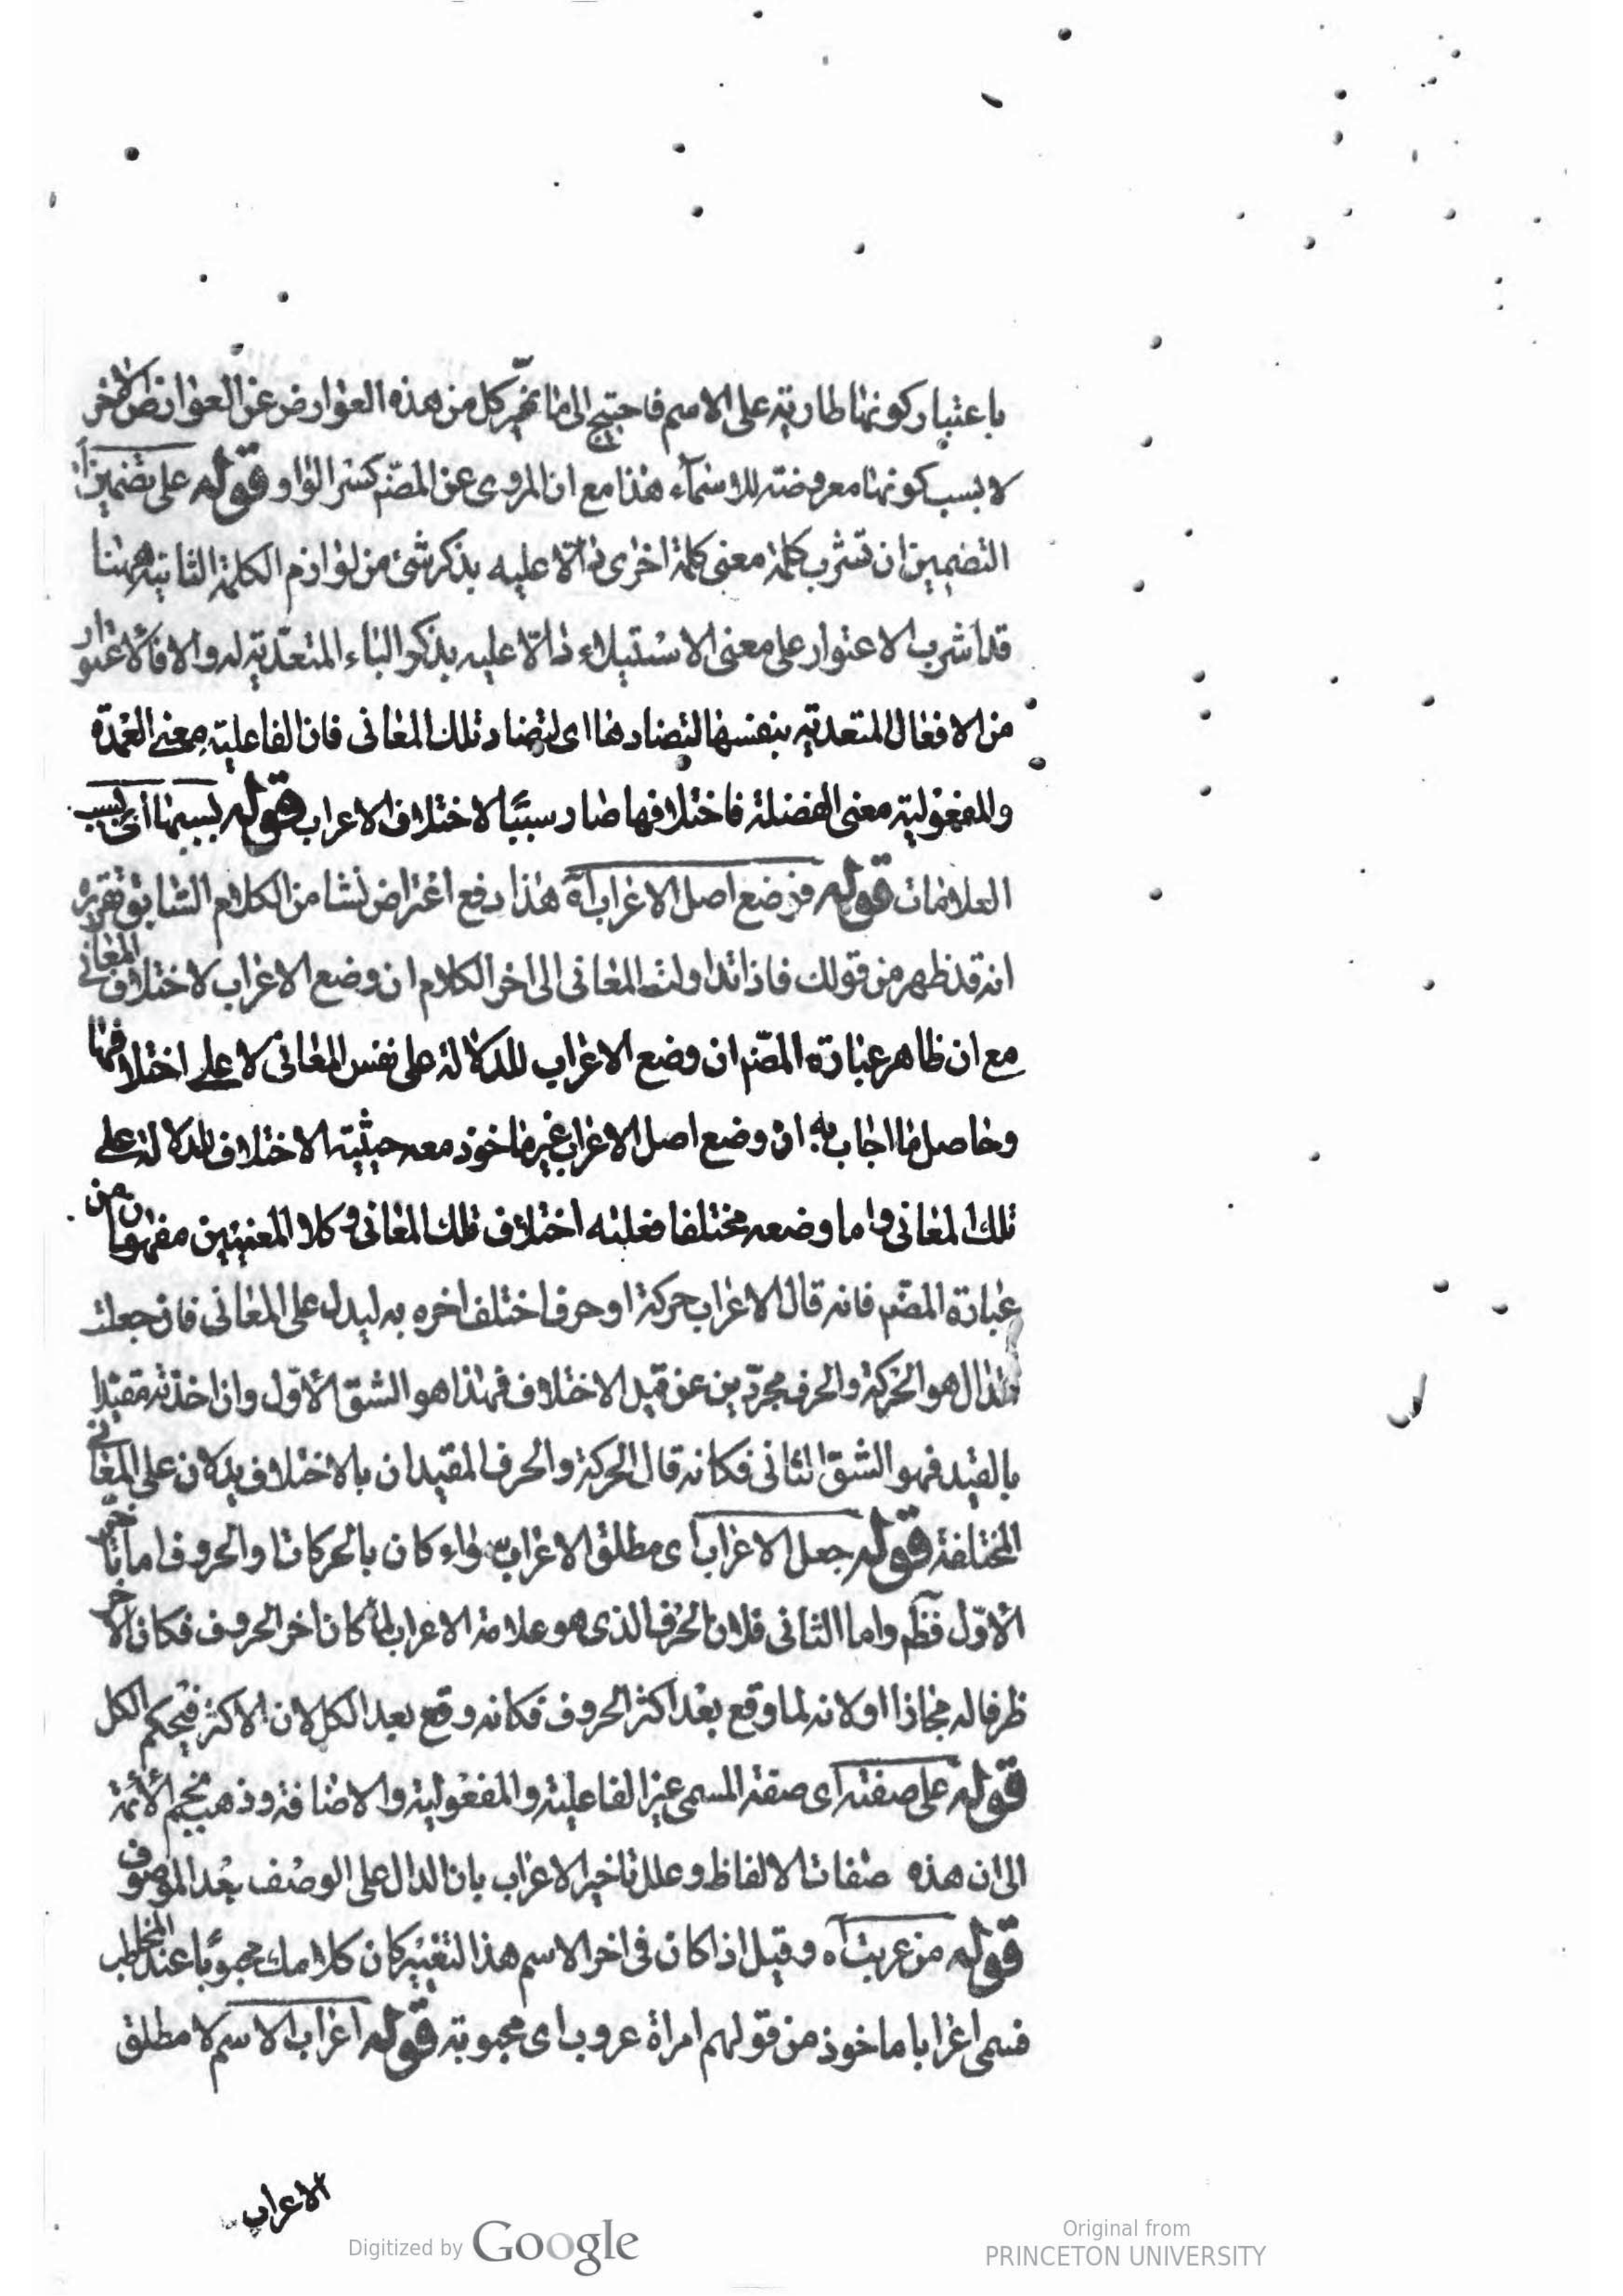 باعتبار كونها طارية على الاسم فاحتيج الى ما تميّز كل من هذه العوارض عن العوارض الاخر
لا بسبب كونها معروضته للاسماء هذا مع ان المروى عن المصنّم كسر الواو قوله على تضمين آه
التضمين ان تشرب كلمة معنى كلمة اخرى دالّا عليه بذكر شئ من لوازم الكلمة الثانية وههنا
قد اشرب الاعتوار على معنى الاستيلاء دالّا عليه بذكر الباء المتعدّية له والا فالاعتوار
من الافعال المتعدية بنفسها لتضادها اى لتضاد تلك المعانى فان الفاعلية معنى العمدة
والمفعولية معنى الفضلة فاختلافها صار سببًا لاختلاف الاعراب قوله بسببها اى بسبب
العلامات قوله فوضع اصل الاعراب آه هذا دفع اعتراض نشا من الكلام السابق تقريره
انه قد ظهر من قولك فاذا تداولت المعانى الى اخر الكلام ان وضع الاعراب لاختلاف المعانى
مع ان ظاهر عبارة المصنّم ان وضع الاعراب للدلالة على نفس المعانى لا على اختلافها
وحاصل ما اجاب به ان وضع اصل الاعراب غير ماخوذ معه حيثية الاختلاف للدلالة على
تلك المعانى واما وضعه مختلفا فعلته اختلاف تلك المعانى وكلا المعنيين مفهومان من
عبارة المصنّم فانه قال الاعراب حركة او حرف اختلف اخره به ليدل على المعانى فان جعلت
الدال هو الحركة والحرف مجرّدين عن قيد الاختلاف فهذا هو الشق الاوّل وان اخذته مقيدا
بالقيد فهو الشق الثانى فكانه قال الحركة والحرف المقيدان بالاختلاف يدلان على المعانى
المختلفة قوله جعل الاعراب اى مطلق الاعراب سواء كان بالحركات او الحروف اما تاخير
الاوّل فظم واما الثانى فلان الحرف الذى هو علامة الاعراب لما كان اخر الحروف فكان الاخر
ظرفا له مجازا او لانه لما وقع بعد اكثر الحروف فكانه وقع بعد الكل لان الاكثر فى حكم الكل
قوله على صفته اى صفة المسمى عن الفاعلية والمفعولية والاضافة وذهب نجم الائمة
الى ان هذه صفات الالفاظ وعلل تاخير الاعراب بان الدال على الوصف بعد الموصوف
قوله من عربت آه وقيل اذا كان فى اخر الاسم هذا التغيير كان كلامك محبوبًا عند المخاطب
فسمى اعرابا ماخوذ من قولهم امراة عروب اى محبوبة قوله اعراب الاسم لا مطلق
الاعراب
Digitized by Google
Original from
PRINCETON UNIVERSITY